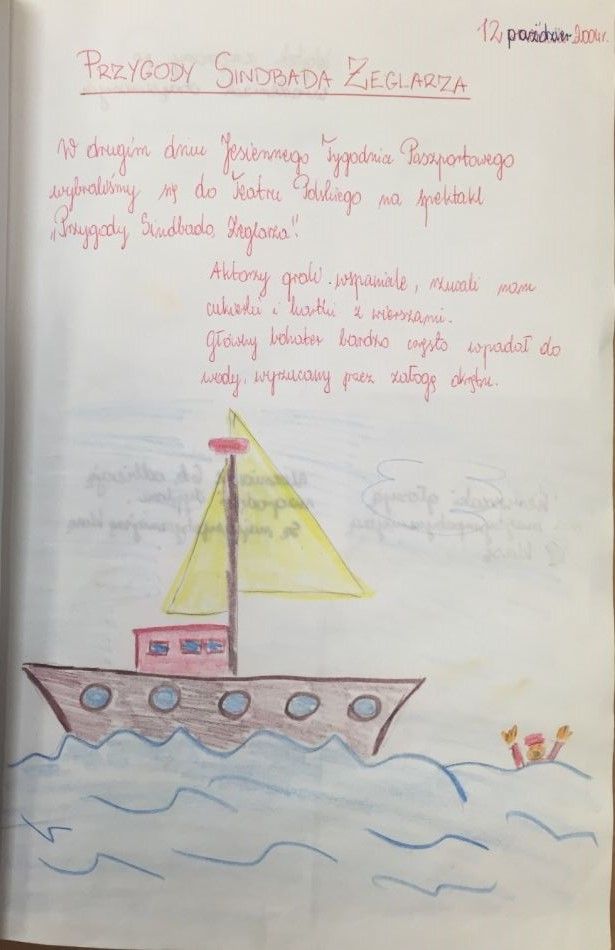 12 październ 2004r.
PRZYGODY SINDBADA ŻEGLARZA
W drugim dniu Jesiennego Tygodnia Paszportowego
wybraliśmy się do Teatru Polskiego na spektakl
„Przygody Sindbada Żeglarza".
Aktorzy grali wspaniale, rzucali nam
cukierki i kartki z wierszami.
Główny bohater bardzo często wpadał do
wody, wyrzucany przez załogę okrętu.